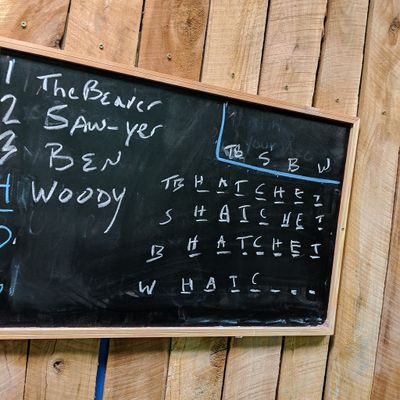 1 The Beaver
2 SAW-yer
3 BEN
WOODY
TB S B W
TB H A T C H E T
S H A T C H E T
B H A T C H E T
W H A T C _ _ _